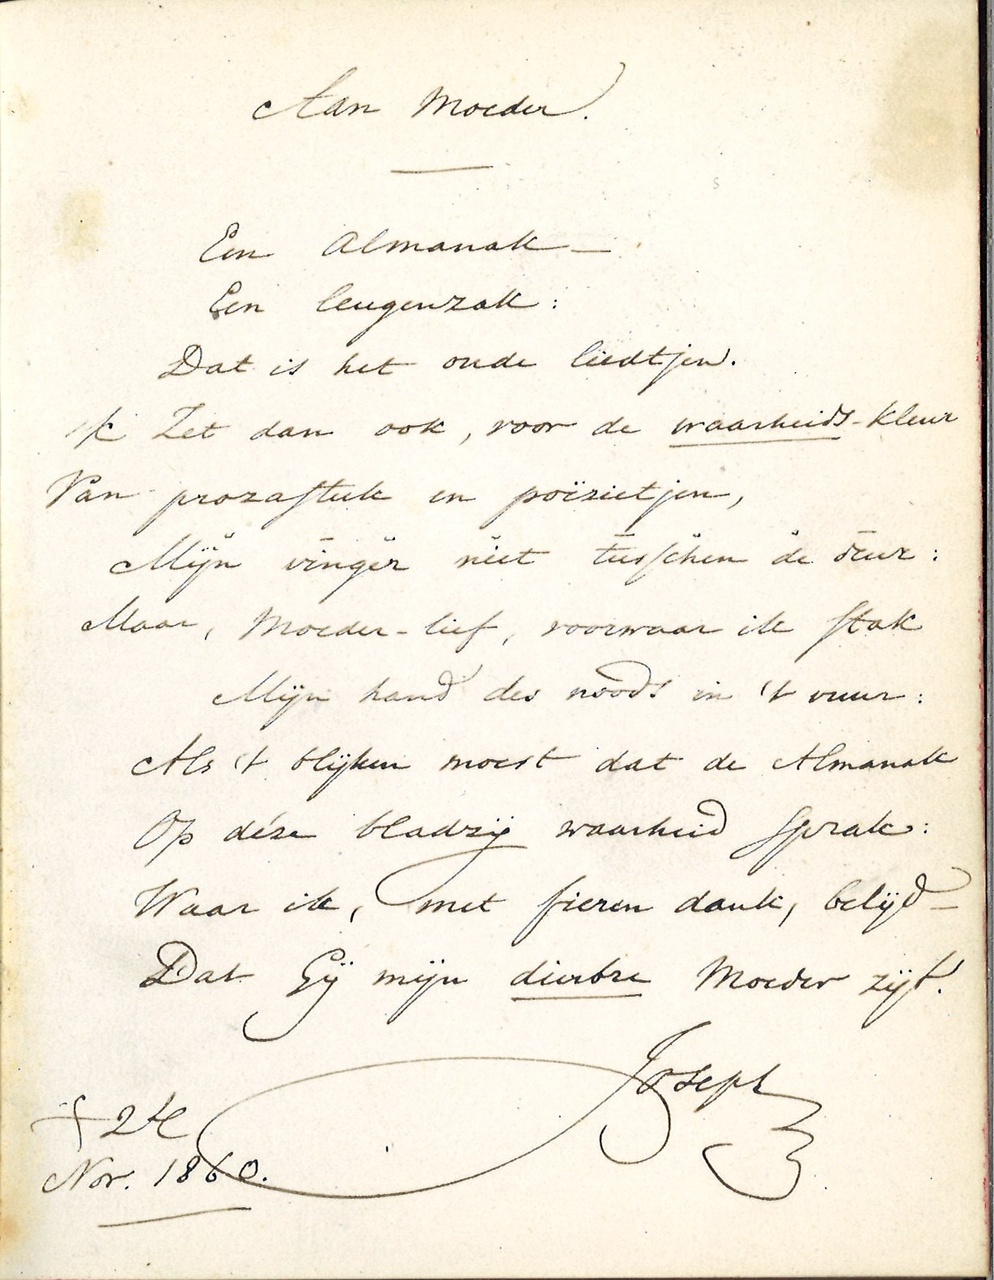 Aan Moeder.
Een Almanak –
Een leugenzak:
Dat is het oude liedtjen.
Ik Zet dan ook, voor de waarheids-kleur
Van prozastuk en poëzietjen,
Mijn vinger niet tusschen de deur:
Maar, Moeder-lief, voorwaar ik stak
Mijn hand des noods in 't vuur:
Als 't blijken moest dat de Almanak
Op déze bladzij waarheid sprak:
Waar ik, met fieren dank, belijd –
Dat Gij mijn dierbre Moeder zijt!
Joseph
Nov. 1860.